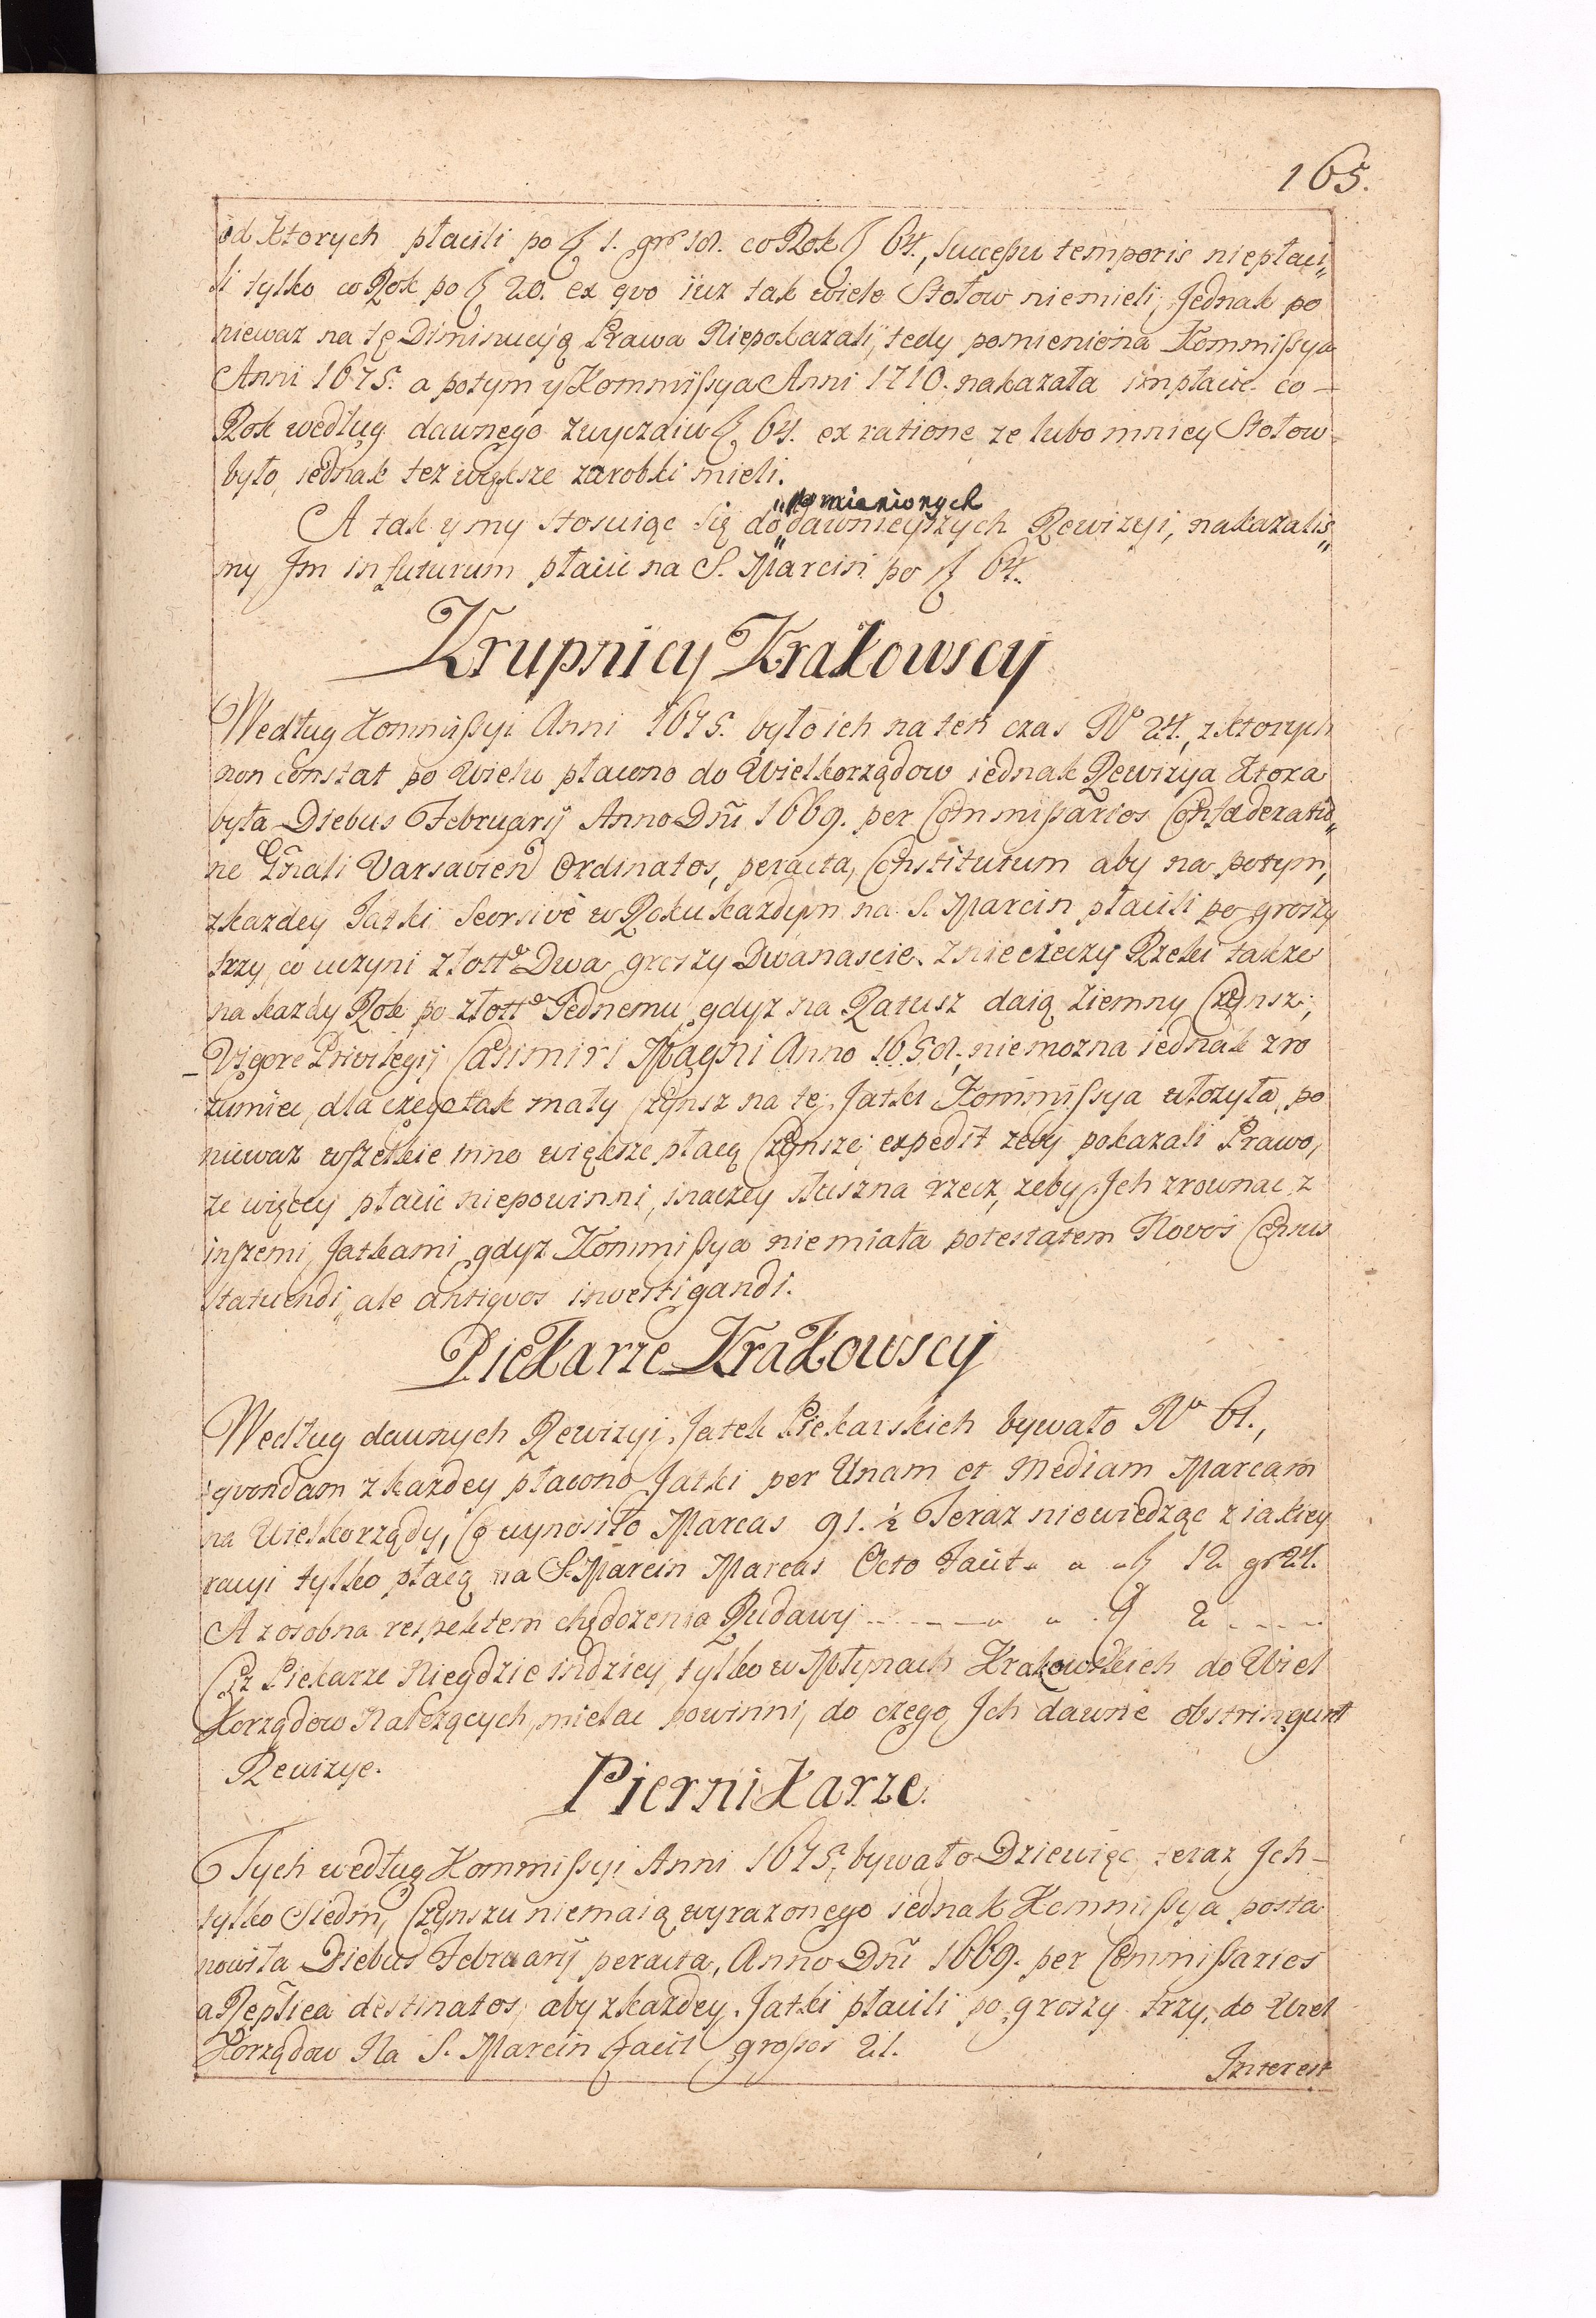 165.
od Ktorych płacili po ƒ 1. gr 18. co Rok ƒ 64., Successu temporis niepłaci„
li tylko co Rok po ƒ 20. ex qvo iuz tak wiele Stołow niemieli, Jednak po
niewaz na tę Diminucyią Prawa Niepokazali, tedy pomieniona Kommissya
Anni 1675. a potym y Kommissya Anni 1710. nakazała im płacic co-
Rok według dawnego zwyczaiu ƒ 64. ex ratione ze lubo mniey Stołow
było, iednak tez większe zarobki mieli.
„pomienionych
A tak y my stosuiąc się do„ dawnieyszych Rewizyi, nakazalis„
my Jm in futurum płacic na S. Marcin po ƒ 64.
Krupnicy Krakowscy
Według Kommissyi Anni 1675. było ich na ten czas No 24., z ktorych
non constat po wielu płacono do Wielkorządow iednak Rewizya Ktora
była Diebus Februarij Anno Dñi 1669. per Commissarios Confæderatio„
ne Gñali Varsavien Ordinatos, peracta, Constitutum aby na potym,
z kazdey Jatki Seorsivè w Roku kazdym na S. Marcin płacili po groszy
trzy, co uczyni złott Dwa groszy Dwanascie. Znieczeczy Rzeki takze
na kazdy Rok po złott Jednemu, gdyz na Ratusz daią ziemny Czynsz;
Vigore Privilegij Casimiri Magni Anno 1658. niemozna iednak zro
zumiec, dla czego tak mały Czynsz na te Jatki Kommissya włozyła, po
niewaz wszelkie inne większe płacą Czynsze; expedit zeby pokazali Prawo,
ze więcey płacic niepowinni, inaczey słuszna rzecz, zeby Jch zrownac z
inszemi Jatkami gdyz Kommissya niemiała potestatem Novos Census
statuendi, ale antiqvos investigandi.
Piekarze Krakowscy
Według dawnych Rewizyi Jatek Piekarskich bywało No 61.,
qvondam z kazdey płacono Jatki per Unam et Mediam Marcam
na Wielkorządy, Co wynosiło Marcas 91. ½ Teraz niewiedząc z iakiey
racyi tylko płacą na S. Marcin Marcas Octo Facit „ „ „ ƒ 12 gr 24.
A zosobna respektem chędozenia Rudawy - - - - „ „ ƒ 2 - - - -
Ciz Piekarze Niegdzie indziey, tylko w Młynach Krakowskich do Wiel
Korządow Nalezących, mielac powinni, do czego Jch dawne obstringunt
Rewizye.
Piernikarze.
Tych według Kommissyi Anni 1675. bywało Dziewięc, teraz Jch-
tylko Siedm, Czynszu niemaią wyrazonego iednak Kommissya posta
nowiła Diebus Februarij peracta, Anno Dñi 1669. per Commissarios
a Repłica destinatos, aby z kazdey Jatki płacili po groszy trzy, do Wiel
Korządow Na S. Marcin facit grossos 21.
Interest